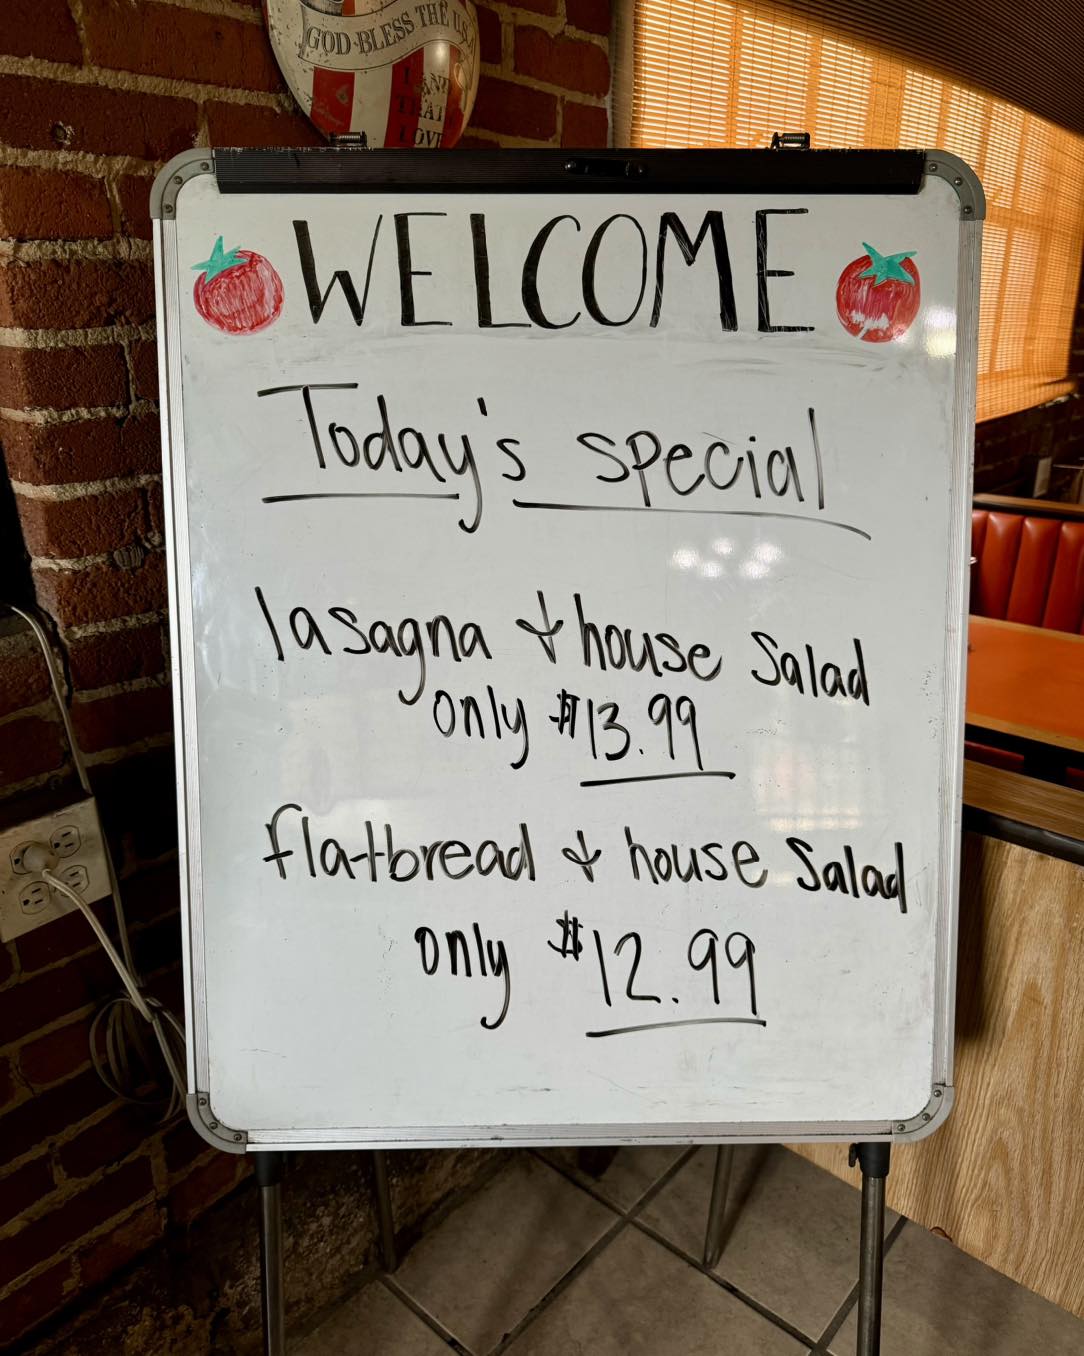 GOD BLESS THE U.S.
THAT
LOVE
WELCOME
Today's special
lasagna & house Salad
only $13.99
flatbread & house Salad
only $12.99